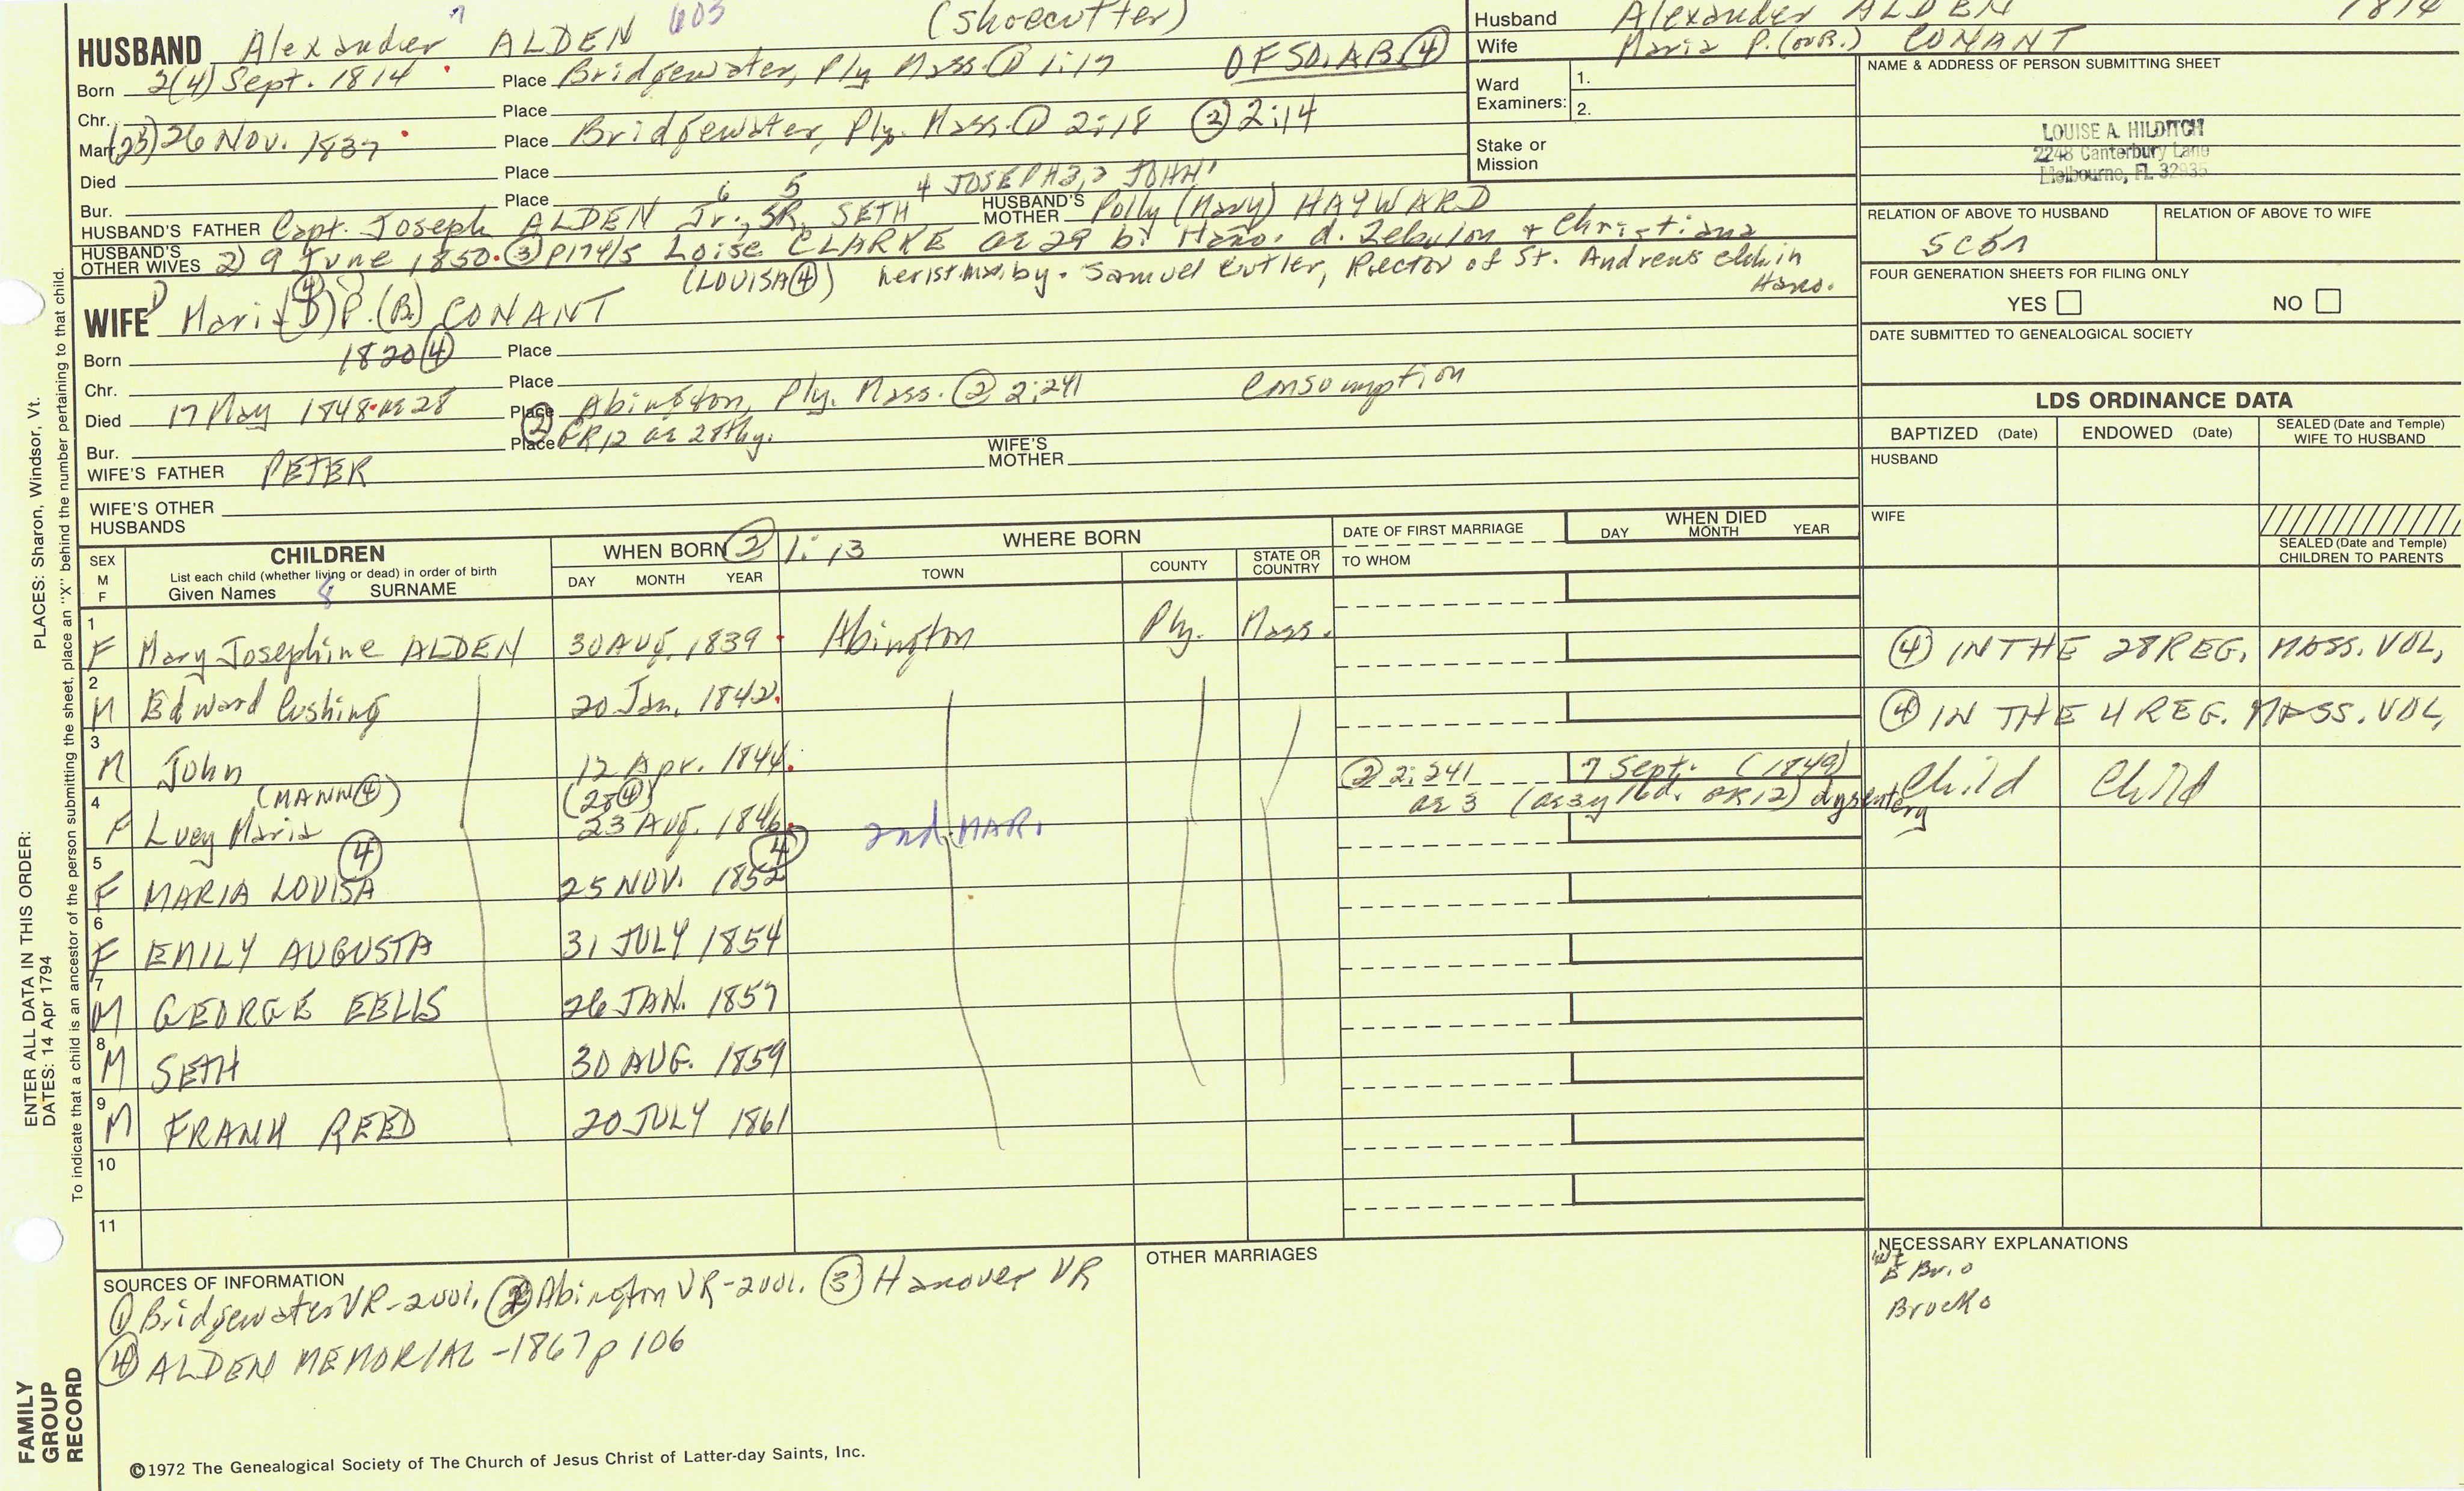 (Shoecutter)
HUSBAND Alexander ALDEN 603
Born 2(4) Sept. 1814 Place Bridgewater, Ply Mass. ① 1:17 OF SO. AB. ④
Chr. Place
Marr. (25) 26 Nov. 1837 Place Bridgewater, Ply. Mass. ① 2:18 ② 2:14
Died Place
Bur. Place
6 5 4 JOSEPH 3,2 JOHN 1
HUSBAND'S FATHER Capt. Joseph ALDEN Jr., SR, SETH HUSBAND'S MOTHER Polly (Mary) HAYWARD
HUSBAND'S OTHER WIVES 2) 9 June 1850. ③ p174/5 Loise CLARKE ae 29 b. Hano. d. Zebulon + Christiana
(LOUISA ④) her 1st m. by. Samuel Cutler, Rector of St. Andrews chh in
Hano.
WIFE Maria (D) P. (B.) CONANT
④
Born 1820 ④ Place
Chr. Place
Died 17 May 1848 ae 28 Place Abington, Ply. Mass. ② 2:241 Consumption
Bur. Place ② CR12 ae 28thy.
WIFE'S FATHER PETER WIFE'S MOTHER
WIFE'S OTHER HUSBANDS
Husband Alexander ALDEN 1814
Wife Maria P. (or B.) CONANT
Ward Examiners: 1.
2.
Stake or Mission
NAME & ADDRESS OF PERSON SUBMITTING SHEET
LOUISE A. HILDITCH
2248 Canterbury Lane
Melbourne, FL 32935
RELATION OF ABOVE TO HUSBAND RELATION OF ABOVE TO WIFE
5C61
FOUR GENERATION SHEETS FOR FILING ONLY
YES NO
DATE SUBMITTED TO GENEALOGICAL SOCIETY
LDS ORDINANCE DATA
BAPTIZED (Date) ENDOWED (Date) SEALED (Date and Temple) WIFE TO HUSBAND
HUSBAND
WIFE
SEALED (Date and Temple) CHILDREN TO PARENTS
SEX M F
CHILDREN
List each child (whether living or dead) in order of birth
Given Names 8 SURNAME
WHEN BORN ② 1:13
DAY MONTH YEAR
WHERE BORN
TOWN COUNTY STATE OR COUNTRY
DATE OF FIRST MARRIAGE
TO WHOM
WHEN DIED
DAY MONTH YEAR
1 F Mary Josephine ALDEN 30 Aug. 1839 Abington Ply. Mass. ④ IN THE 28 REG. MASS. VOL,
2 M Edward Cushing 20 Jan. 1842 ④ IN THE 4 REG. MASS. VOL,
3 M John 12 Apr. 1844 ② 2:241 7 Sept. (1849) Child Child
(MANN ④) (28 ④) ae 3 (ae 3y 16d. CR12) dysentery
4 F Lucy Maria 23 Aug. 1846 2nd MAR.
5 F MARIA LOUISA ④ 25 NOV. 1852 ④
6 F EMILY AUGUSTA 31 JULY 1854
7 M GEORGE EELLS 26 JAN. 1857
8 M SETH 30 AUG. 1859
9 M FRANK REED 20 JULY 1861
10
11
SOURCES OF INFORMATION
① Bridgewater VR-2vol. ② Abington VR-2vol. ③ Hanover VR
④ ALDEN MEMORIAL-1867 p 106
OTHER MARRIAGES
NECESSARY EXPLANATIONS
E Br. o
Brock o
©1972 The Genealogical Society of The Church of Jesus Christ of Latter-day Saints, Inc.
FAMILY GROUP RECORD
ENTER ALL DATA IN THIS ORDER:
DATES: 14 Apr 1794
PLACES: Sharon, Windsor, Vt.
To indicate that a child is an ancestor of the person submitting the sheet, place an "X" behind the number pertaining to that child.